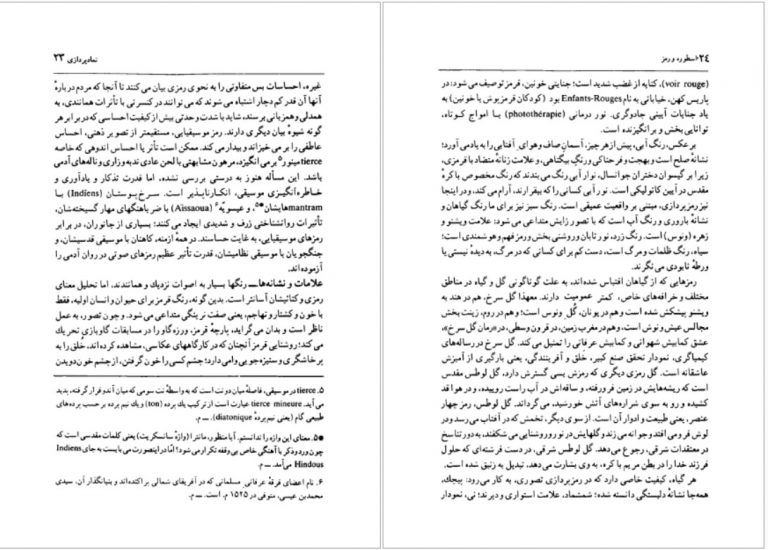 نمادپردازی ۲۳
غیره، احساسات بس متفاوتی را به نحوی رمزی بیان می‌کنند تا آنجا که مردم دربارهٔ
آنها آن قدر کم دچار اشتباه می‌شوند که می‌توانند در کنسرتی با تأثرات همانندی، به
همدلی و همزبانی برسند، شاید با شدت و حدتی بیش از کیفیت احساسی که در برابر هر
گونه شیوهٔ بیان دیگری دارند. رمز موسیقیایی، مستقیمتر از تصویر ذهنی، احساس
عاطفی را بر می‌خیزاند و بیدار می‌کند. ممکن است تأثر یا احساس اندوهی که خاصه
tierce مینور۵ برمی‌انگیزد، مرهون مشابهتی با لحن عادی ندبه و زاری و ناله‌های آدمی
باشد. این مسأله هنوز به درستی بررسی نشده، اما قدرت تذکار و یادآوری و
خاطره‌انگیزی موسیقی، انکارناپذیر است. سرخ‌پوستان (Indiens) با
mantramهایشان۵*، و عیسویّه۶ (Aissaoua) با ضرباهنگهای مهار گسیخته‌شان،
تأثیرات روانشناختی ژرف و شدیدی ایجاد می‌کنند؛ بسیاری از جانوران، در برابر
رمزهای موسیقیایی، به غایت حساسند. در همهٔ ازمنه، کاهنان با موسیقی قدسیشان، و
جنگجویان با موسیقی نظامیشان، قدرت تأثیر عظیم رمزهای صوتی در روان آدمی را
آزموده‌اند.
علامات و نشانه‌ها ــ رنگها بسیار به اصوات نزدیک و همانندند، اما تحلیل معنای
رمزی و کنائیشان آسانتر است. بدین گونه، رنگ قرمز برای حیوان و انسان اولیه، فقط
با خون و کشتار و تهاجم، یعنی صفت نرینگی متداعی می‌شود، و چون تصور، به عمل
ناظر است و بدان می‌گراید، پارچهٔ قرمز، ورزه‌گاو را در مسابقات گاوبازی تحریک
می‌کند؛ روشنایی قرمز آنچنان که در کارگاههای عکاسی، مشاهده کرده‌اند، خلق را به
پرخاشگری و ستیزه‌جویی وامی‌دارد؛ چشم کسی را خون گرفتن، از چشم خون دویدن
۵. tierce در موسیقی، فاصلهٔ میان دو نت است که به واسطهٔ نت سومی که میان آندو قرار گرفته، پدید
می‌آید. tierce mineure عبارت است از ترکیب یك پرده (ton) و یك نیم پرده بر حسب پرده‌های
طبیعی گام (یعنی نیم پردهٔ diatonique). ــ م.
۵*. معنای این واژه را ندانستم. آیا منظور، مانترا (واژهٔ سانسکریت) یعنی کلمات مقدسی است که
چون ورد و ذکر با آهنگی خاص بی‌وقفه تکرار می‌شود؟ امّا در اینصورت می‌بایست به جای Indiens
Hindous می‌آمد. ــ م.
۶. نام اعضای فرقهٔ عرفانی مسلمانی که در آفریقای شمالی پراکنده‌اند و بنیانگذار آن، سیدی
محمدبن عیسی، متوفی در ۱۵۲۵ م. است. ــ م.
۲۴ اسطوره و رمز
(voir rouge)، کنایه از غضب شدید است؛ جنایتی خونین، قرمز توصیف می‌شود؛ در
پاریس کهن، خیابانی به نام Enfants-Rouges بود (کودکان قرمزپوش یا خونین) به
یاد جنایات آیینی جادوگری. نور درمانی (photothérapie) با امواج کوتاه،
توانایی‌بخش و برانگیزنده است.
برعکس، رنگ آبی، پیش از هر چیز، آسمان صاف و هوای آفتابی را به یاد می‌آورد؛
نشانهٔ صلح است و بهجت و فرحناکی و رنگ بیگناهی، و علامت زنانهٔ متضاد با قرمزی،
زیرا بر گیسوان دختران جوانسال، نوار آبی رنگ می‌بندند که رنگ مخصوص باکرهٔ
مقدس در آیین کاتولیکی است. نور آبی کسانی را که بیقرارند، آرام می‌کند، و در اینجا
نیز رمزپردازی، مبتنی بر واقعیتی عمیقی است. رنگ سبز نیز برای ما رنگ گیاهان و
نشانهٔ باروری و رنگ آب است که با تصور زایش متداعی می‌شود: علامت ویشنو و
زهره (ونوس) است. رنگ زرد، نور تابان و روشنی‌بخش و رمز فهم و هوشمندی است؛
سیاه، رنگ ظلمات و مرگ است، دست کم برای کسانی که در مرگ، به دیدهٔ نیستی یا
ورطهٔ نابودی می‌نگرند.
رمزهایی که از گیاهان اقتباس شده‌اند، به علت گوناگونی گل و گیاه در مناطق
مختلف و خرافه‌های خاص، کمتر عمومیت دارند. معهذا گل سرخ، هم در هند به
ویشنو پیشکش شده است و هم در یونان، گل ونوس است؛ و هم در روم، زینت بخش
مجالس عیش و نوش است، و هم در مغرب زمین، در قرون وسطی، در «رمان گل سرخ»،
عشق کمابیش شهوانی و کمابیش عرفانی را تمثیل می‌کند. گل سرخ در رساله‌های
کیمیاگری، نمودار تحقق صنع کبیر، خلق و آفرینندگی، یعنی بارگیری از آمیزش
عاشقانه است. گل رمزی دیگری که رمزش بسی گسترش دارد، گل لوطس است
است که ریشه‌هایش در زمین فرو رفته، و ساقه‌اش در آب راست روییده، و در هوا قد
کشیده و رو به سوی شراره‌های آتش خورشید، می‌گرداند. گل لوطس، رمز چهار
عنصر، یعنی طبیعت و ادوار آن است. از سوی دیگر، تخمش که در آفتاب می‌رسد و در
لوش فرو می‌افتد و جوانه می‌زند و گلهایش در نور و روشنایی می‌شکفند، به دور تناسخ
در معتقدات شرقی، رجوع می‌دهد. گل لوطس شرقی، در دست فرشته‌ای که حلول
فرزند خدا را در بطن مریم باکره، به وی بشارت می‌دهد، تبدیل به زنبق شده است.
هر گیاه، کیفیت خاصی دارد که در رمزپردازی تصوری، به کار می‌رود: پیچك،
همه‌جا نشانهٔ دلبستگی دانسته شده؛ شمشاد، علامت استواری و دیرند؛ نی، نمودار